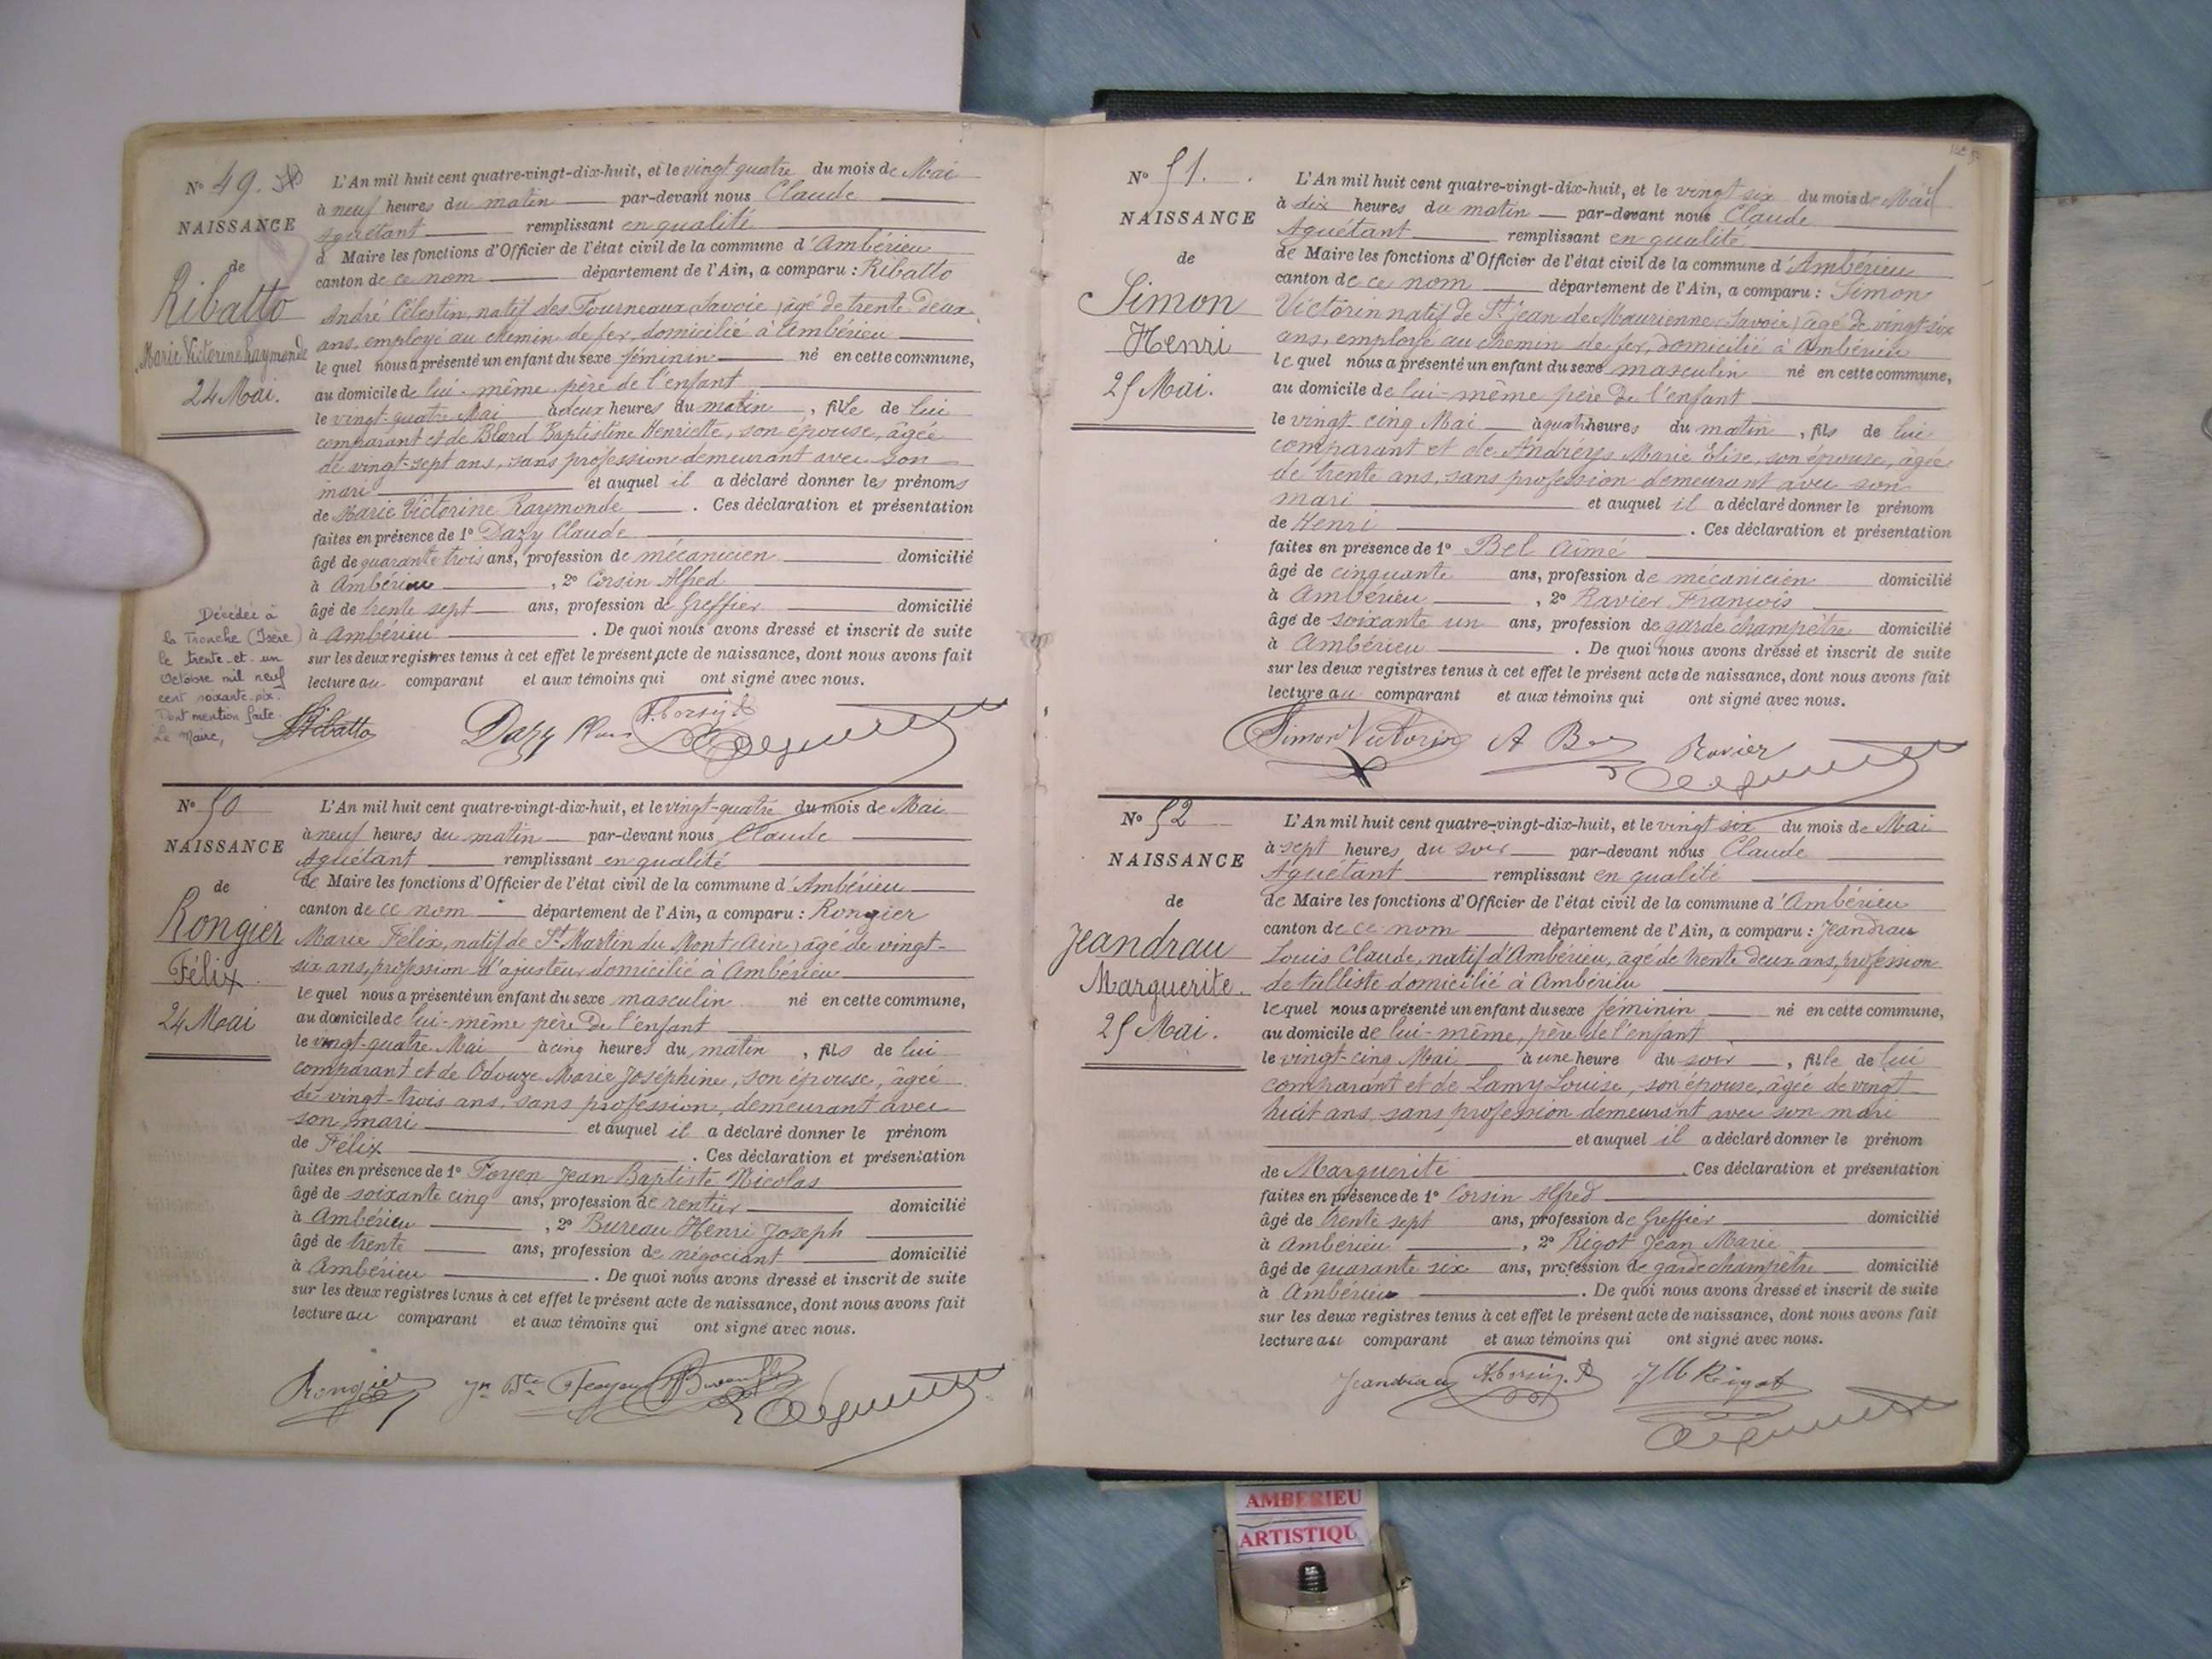 N° 49.
NAISSANCE
de
Ribatto
Marie Victorine Raymonde
24 Mai.
L'An mil huit cent quatre-vingt-dix-huit, et le vingt quatre du mois de Mai
à neuf heures du matin par-devant nous Claude
Aguétant remplissant en qualité
d Maire les fonctions d'Officier de l'état civil de la commune d'Ambérieu
canton de ce nom département de l'Ain, a comparu : Ribatto
André Célestin, natif des Fourneaux (Savoie) âgé de trente deux
ans, employé au chemin de fer, domicilié à Ambérieu
lequel nous a présenté un enfant du sexe féminin né en cette commune,
au domicile de lui-même père de l'enfant
le vingt-quatre Mai à deux heures du matin, fille de lui
comparant et de Blard Baptistine Henriette, son épouse, âgée
de vingt-sept ans, sans profession demeurant avec son
mari et auquel il a déclaré donner les prénoms
de Marie Victorine Raymonde. Ces déclaration et présentation
faites en présence de 1° Dazy Claude
âgé de quarante trois ans, profession de mécanicien domicilié
à Ambérieu, 2° Corsin Alfred
âgé de trente sept ans, profession de Greffier domicilié
à Ambérieu. De quoi nous avons dressé et inscrit de suite
sur les deux registres tenus à cet effet le présent acte de naissance, dont nous avons fait
lecture au comparant et aux témoins qui ont signé avec nous.
Décédée à
la Tronche (Isère)
le trente-et-un
Octobre mil neuf
cent soixante-dix.
Dont mention faite.
Le Maire,
Ribatto Dazy A. Corsin
N° 50
NAISSANCE
de
Rongier
Félix
24 Mai
L'An mil huit cent quatre-vingt-dix-huit, et le vingt-quatre du mois de Mai
à neuf heures du matin par-devant nous Claude
Aguétant remplissant en qualité
de Maire les fonctions d'Officier de l'état civil de la commune d'Ambérieu
canton de ce nom département de l'Ain, a comparu : Rongier
Marie Félix, natif de St Martin du Mont (Ain) âgé de vingt-
six ans, profession d'ajusteur domicilié à Ambérieu
lequel nous a présenté un enfant du sexe masculin né en cette commune,
au domicile de lui-même père de l'enfant
le vingt-quatre Mai à cinq heures du matin, fils de lui
comparant et de Odouze Marie Joséphine, son épouse, âgée
de vingt-trois ans, sans profession, demeurant avec
son mari et auquel il a déclaré donner le prénom
de Félix. Ces déclaration et présentation
faites en présence de 1° Foyen Jean Baptiste Nicolas
âgé de soixante cinq ans, profession de rentier domicilié
à Ambérieu, 2° Bureau Henri Joseph
âgé de trente ans, profession de négociant domicilié
à Ambérieu. De quoi nous avons dressé et inscrit de suite
sur les deux registres tenus à cet effet le présent acte de naissance, dont nous avons fait
lecture au comparant et aux témoins qui ont signé avec nous.
Rongier
N° 51.
NAISSANCE
de
Simon
Henri
25 Mai.
L'An mil huit cent quatre-vingt-dix-huit, et le vingt six du mois de Mai
à dix heures du matin par-devant nous Claude
Aguétant remplissant en qualité
de Maire les fonctions d'Officier de l'état civil de la commune d'Ambérieu
canton de ce nom département de l'Ain, a comparu : Simon
Victorin natif de St Jean de Maurienne (Savoie) âgé de vingt-six
ans, employé au chemin de fer, domicilié à Ambérieu
lequel nous a présenté un enfant du sexe masculin né en cette commune,
au domicile de lui-même père de l'enfant
le vingt cinq Mai à quatre heures du matin, fils de lui
comparant et de Andréys Marie Élise, son épouse, âgée
de trente ans, sans profession demeurant avec son
mari et auquel il a déclaré donner le prénom
de Henri. Ces déclaration et présentation
faites en présence de 1° Bel Aimé
âgé de cinquante ans, profession de mécanicien domicilié
à Ambérieu, 2° Ravier François
âgé de soixante un ans, profession de garde champêtre domicilié
à Ambérieu. De quoi nous avons dressé et inscrit de suite
sur les deux registres tenus à cet effet le présent acte de naissance, dont nous avons fait
lecture au comparant et aux témoins qui ont signé avec nous.
Simon Victorin Ravier
N° 52
NAISSANCE
de
Jeandrau
Marguerite.
25 Mai.
L'An mil huit cent quatre-vingt-dix-huit, et le vingt six du mois de Mai
à sept heures du soir par-devant nous Claude
Aguétant remplissant en qualité
de Maire les fonctions d'Officier de l'état civil de la commune d'Ambérieu
canton de ce nom département de l'Ain, a comparu : Jeandrau
Louis Claude, natif d'Ambérieu, âgé de trente deux ans, profession
de tulliste domicilié à Ambérieu
lequel nous a présenté un enfant du sexe féminin né en cette commune,
au domicile de lui-même, père de l'enfant
le vingt-cinq Mai à une heure du soir, fille de lui
comparant et de Lamy Louise, son épouse, âgée de vingt
huit ans, sans profession demeurant avec son mari
et auquel il a déclaré donner le prénom
de Marguerite. Ces déclaration et présentation
faites en présence de 1° Corsin Alfred
âgé de trente sept ans, profession de Greffier domicilié
à Ambérieu, 2° Rigot Jean Marie
âgé de quarante six ans, profession de garde champêtre domicilié
à Ambérieu. De quoi nous avons dressé et inscrit de suite
sur les deux registres tenus à cet effet le présent acte de naissance, dont nous avons fait
lecture au comparant et aux témoins qui ont signé avec nous.
Jeandrau A. Corsin JM Rigot
AMBERIEU
ARTISTIQU